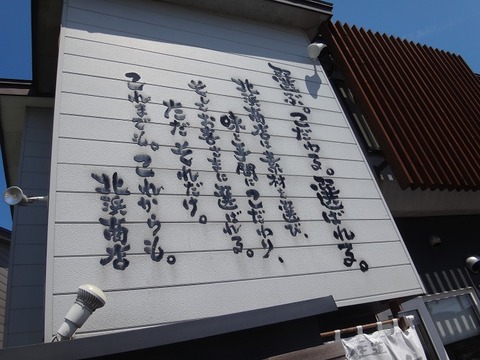 選ぶ。こだわる。選ばれる。
北浜商店は素材を選び、
味と手間にこだわり、
そしてお客さまに選ばれる。
ただそれだけ。
これまでも。これからも。
北浜商店